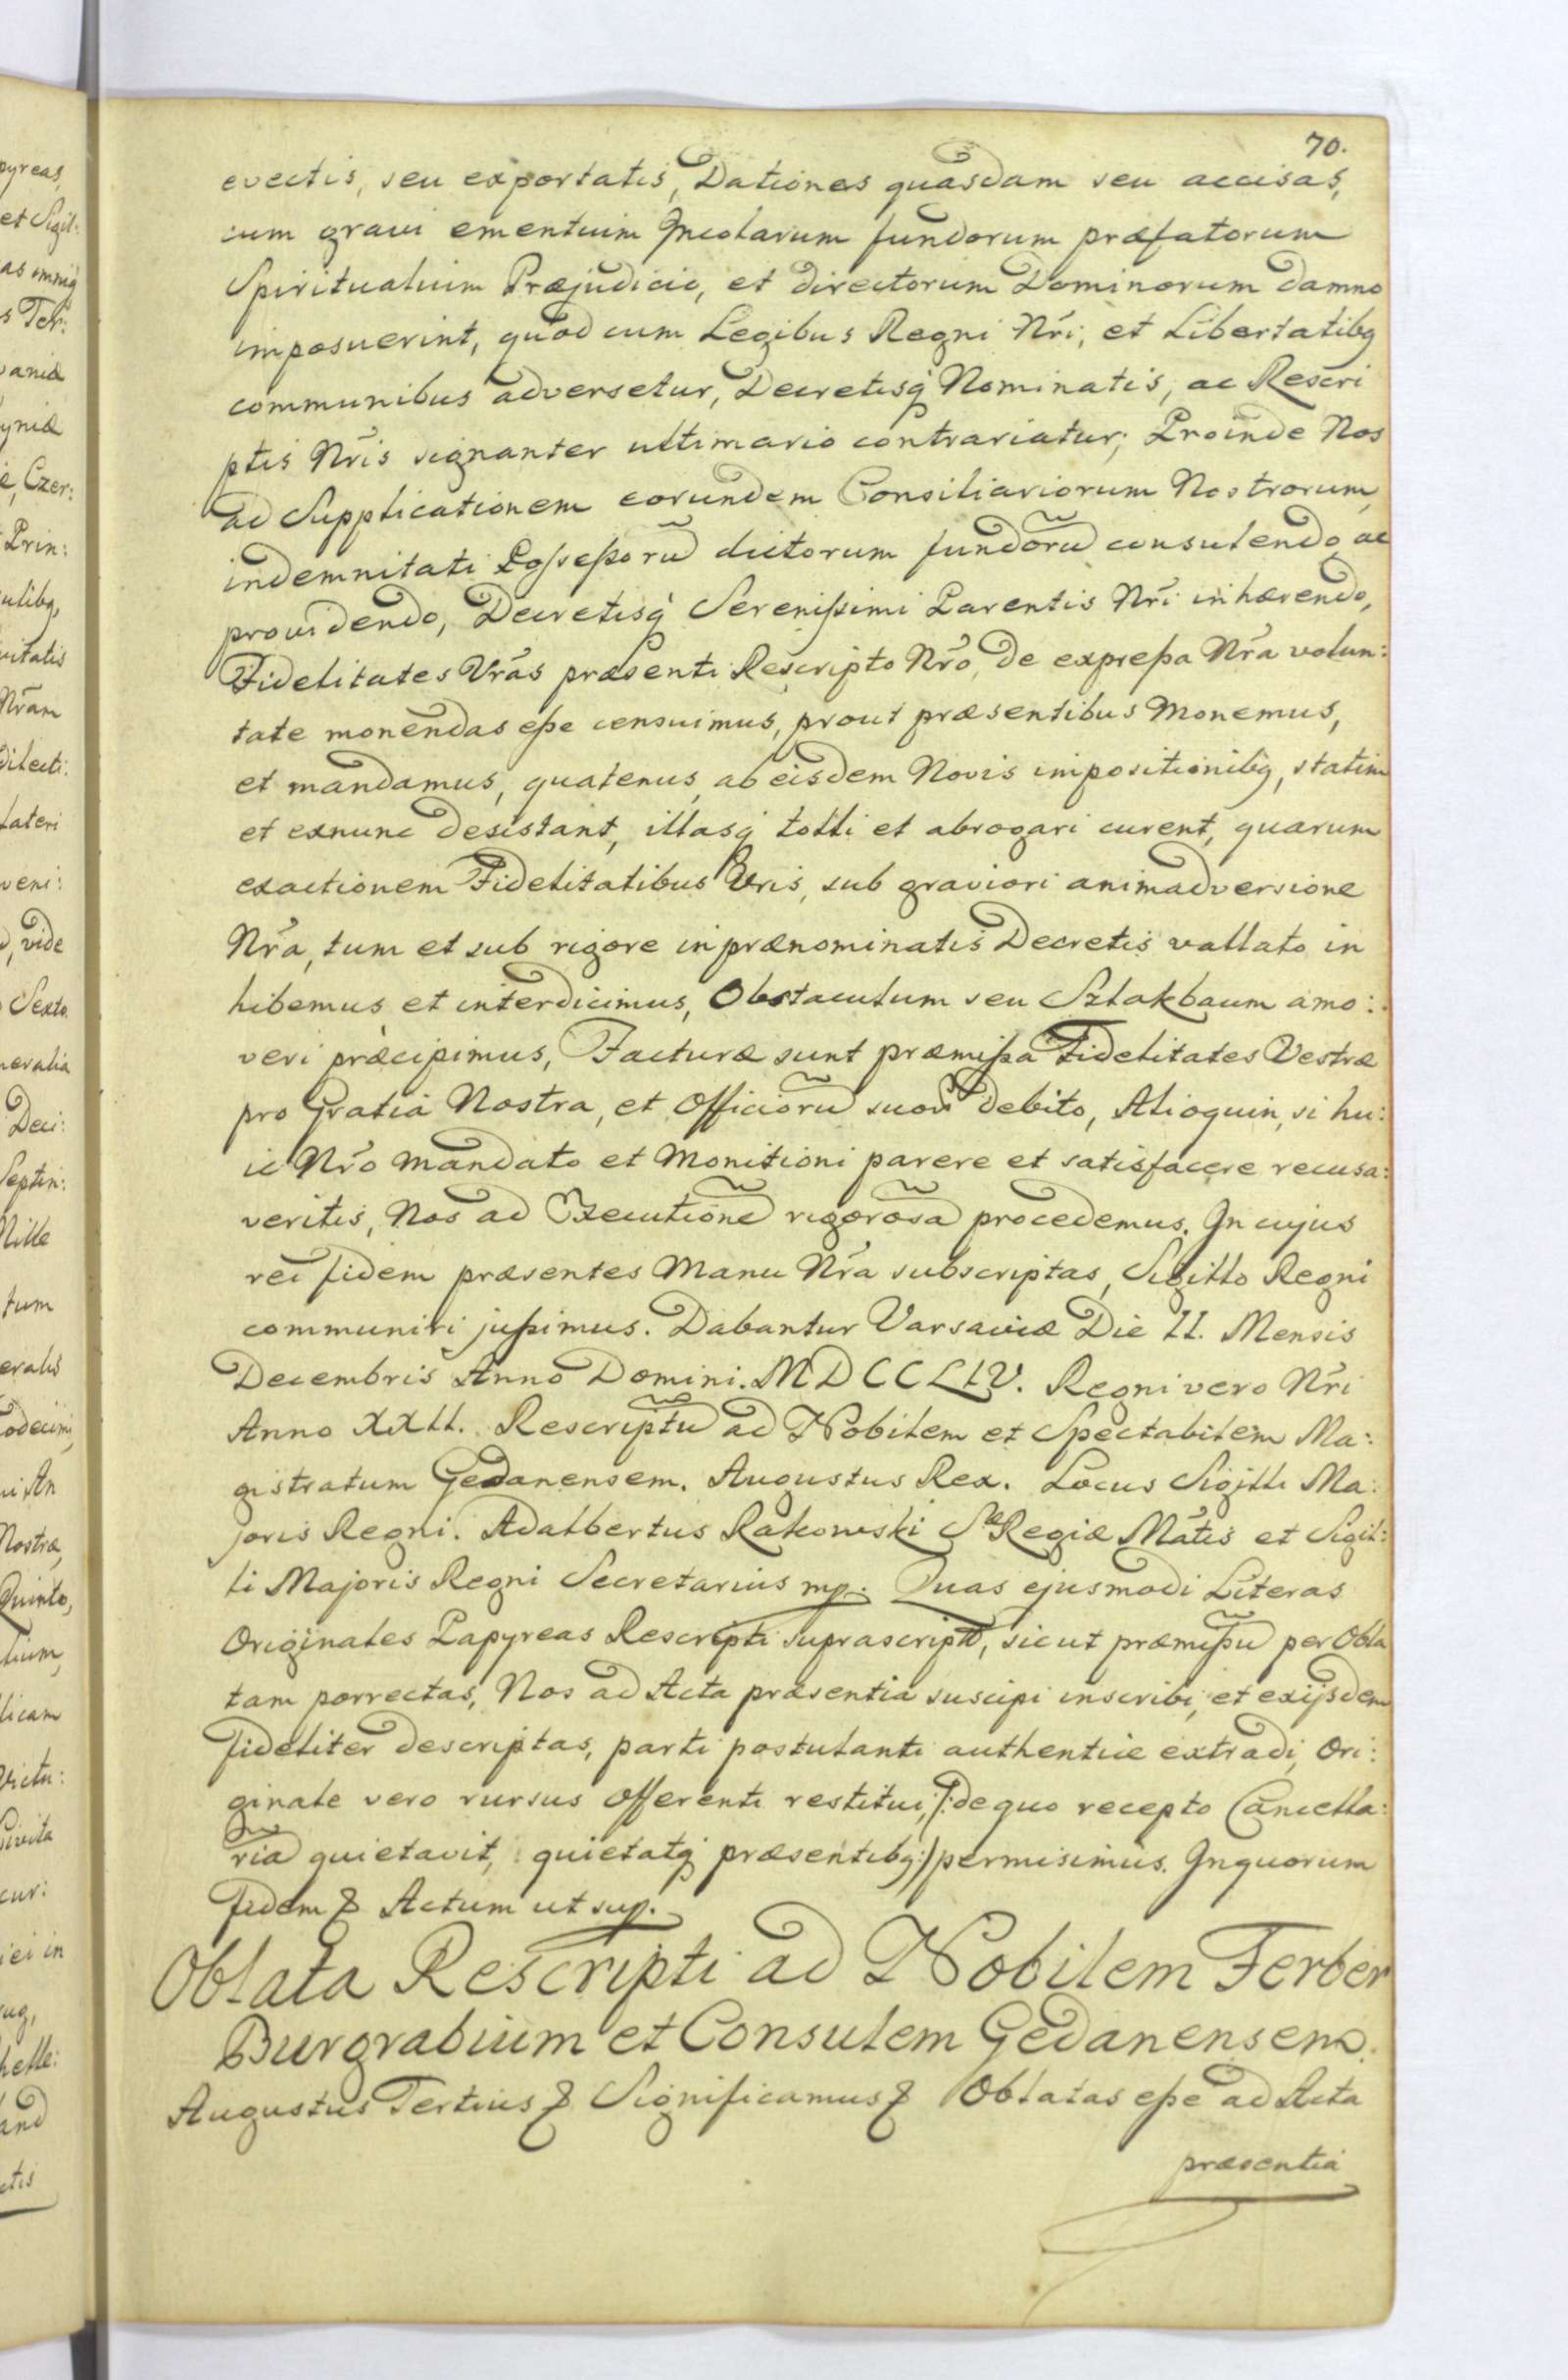 70.
evectis, seu exportatis, Dationes quasdam seu accisas,
cum gravi ementium Incolarum fundorum præfatorum
Spiritualium Præjudicio, et directorum Dominorum damno
imposuerint, quod cum Legibus Regni Nri, et Libertatibq
communibus adversetur, Decretisq Nominatis, ac Rescri
ptis Nris signanter ultimario contrariatur; Proinde Nos
ad Supplicationem eorundem Consiliariorum Nostrorum,
indemnitati Possessorũ dictorum fundorũ consulendo, ac
providendo, Decretisq Serenissimi Parentis Nri inhærendo,
Fidelitates Vras præsenti Rescripto Nro, de expressa Nra volun:
tate monendas esse censuimus, prout præsentibus Monemus,
et mandamus, quatenus, ab eisdem Novis impositionibq, statim
et exnunc desistant, illasq tolli et abrogari curent, quarum
exactionem Fidelitatibus Vris, sub graviori animadversione
Nra, tum et sub rigore in prænominatis Decretis vallato in
hibemus et interdicimus, Obstaculum seu Szlakbaum amo:
veri præcipimus, Facturæ sunt præmissa Fidelitates Vestræ
pro Gratia Nostra, et Officiorũ suorũ debito, Alioquin, si hu:
ic Nro Mandato et Monitioni parere et satisfacere recusa:
veritis, Nos ad Executionẽ rigorosã procedemus. In cujus
rei fidem præsentes Manu Nra subscriptas, Sigillo Regni
communiri jussimus. Dabantur Varsaviæ Die II. Mensis
Decembris Anno Domini. MDCCLIV. Regni vero Nri
Anno XXII. Rescriptũ ad Nobilem et Spectabilem Ma:
gistratum Gedanensem. Augustus Rex. Locus Sigilli Ma:
joris Regni. Adalbertus Rakowski Sæ Regiæ Mátis et Sigil:
li Majoris Regni Secretarius mp. Quas ejusmodi Literas
Originales Papyreas Rescripti suprascripti, sicut præmissũ per Obla
tam porrectas, Nos ad Acta præsentia suscipi inscribi, et exijsdem
fideliter descriptas, parti postulanti authentice extradi, Ori:
ginale vero rursus Offerenti restitui, /:de quo recepto Cancella:
riã quietavit, quietatq præsentibq:/ permisimus. In quorum
fidem & Actum ut sup.
Oblata Rescripti ad Nobilem Ferber
Burgrabium et Consulem Gedanensem.
Augustus Tertius & Significamus & Oblatas esse ad Acta
præsentia